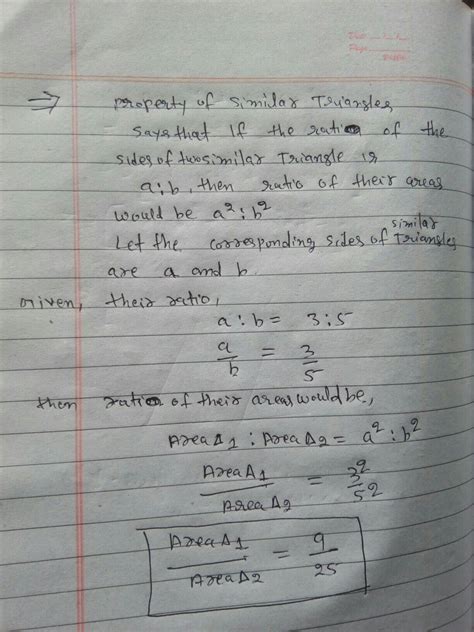 ⇒ property of similar Triangles
says that if the ratio of the
sides of two similar Triangle is
a:b, then ratio of their areas
would be a²:b²
Let the corresponding sides of similar Triangles
are a and b
Given, their ratio,
a : b = 3:5
a/b = 3/5
then ratio of their areas would be,
Area Δ1 : Area Δ2 = a² : b²
Area Δ1 / Area Δ2 = 3² / 5²
Area Δ1 / Area Δ2 = 9 / 25